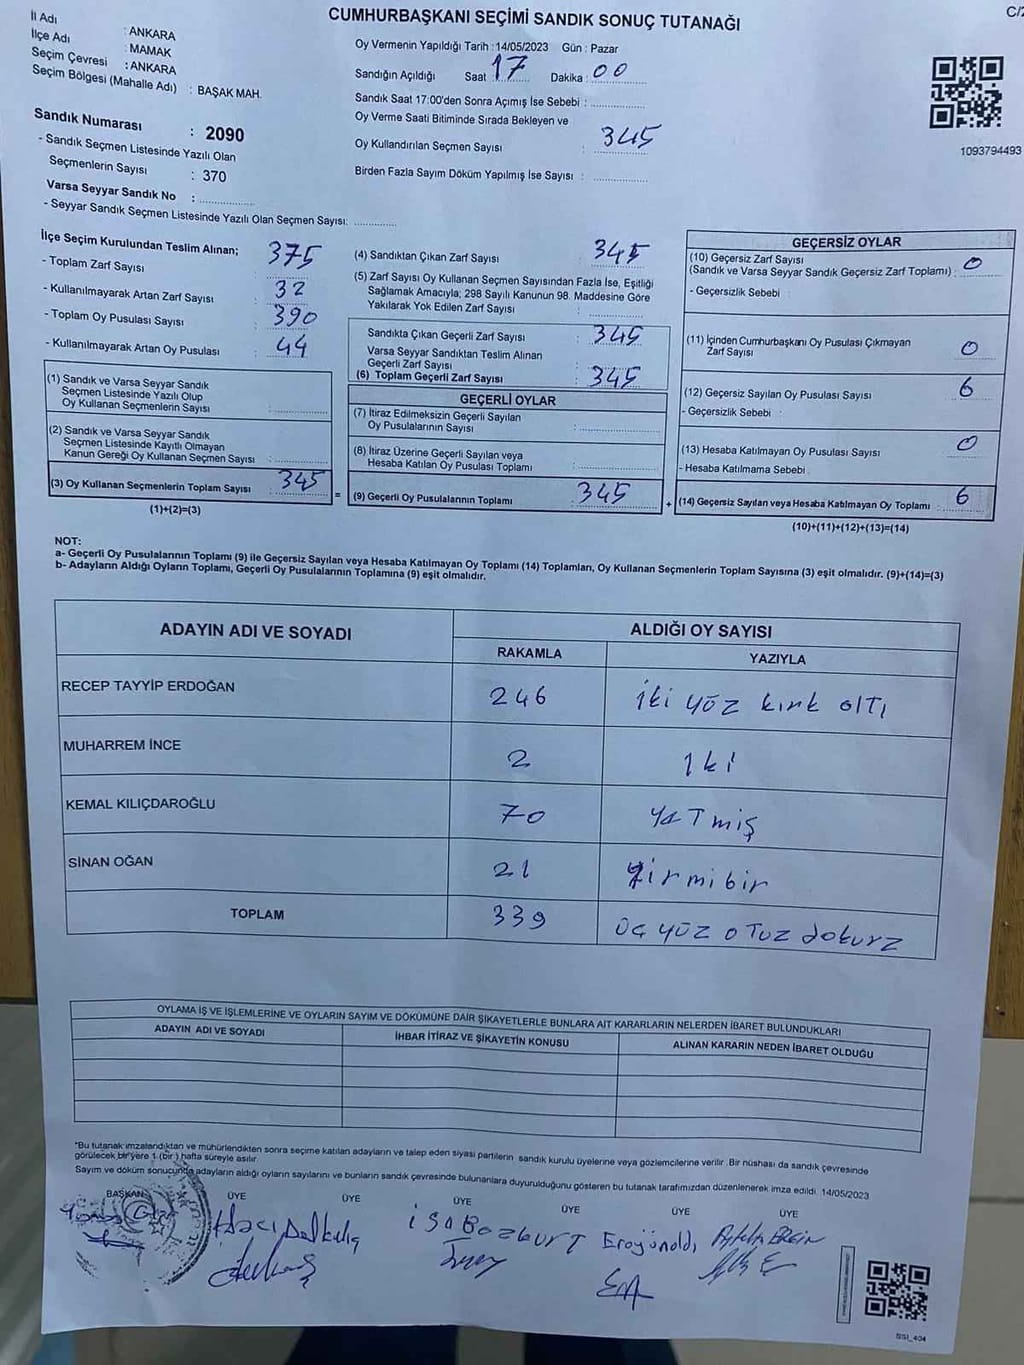 CUMHURBAŞKANI SEÇİMİ SANDIK SONUÇ TUTANAĞI
İl Adı : ANKARA
İlçe Adı : MAMAK
Seçim Çevresi : ANKARA
Seçim Bölgesi (Mahalle Adı) : BAŞAK MAH.
Sandık Numarası : 2090
- Sandık Seçmen Listesinde Yazılı Olan
Seçmenlerin Sayısı : 370
Varsa Seyyar Sandık No :
- Seyyar Sandık Seçmen Listesinde Yazılı Olan Seçmen Sayısı:
Oy Vermenin Yapıldığı Tarih : 14/05/2023 Gün : Pazar
Sandığın Açıldığı Saat 17 Dakika : 00
Sandık Saat 17:00'den Sonra Açımış İse Sebebi :
Oy Verme Saati Bitiminde Sırada Bekleyen ve
Oy Kullandırılan Seçmen Sayısı : 345
Birden Fazla Sayım Döküm Yapılmış İse Sayısı :
1093794493
İlçe Seçim Kurulundan Teslim Alınan;
- Toplam Zarf Sayısı : 375
- Kullanılmayarak Artan Zarf Sayısı : 32
- Toplam Oy Pusulası Sayısı : 390
- Kullanılmayarak Artan Oy Pusulası : 44
(1) Sandık ve Varsa Seyyar Sandık
Seçmen Listesinde Yazılı Olup
Oy Kullanan Seçmenlerin Sayısı :
(2) Sandık ve Varsa Seyyar Sandık
Seçmen Listesinde Kayıtlı Olmayan
Kanun Gereği Oy Kullanan Seçmen Sayısı :
(3) Oy Kullanan Seçmenlerin Toplam Sayısı : 345
(1)+(2)=(3)
(4) Sandıktan Çıkan Zarf Sayısı : 345
(5) Zarf Sayısı Oy Kullanan Seçmen Sayısından Fazla İse, Eşitliği
Sağlamak Amacıyla; 298 Sayılı Kanunun 98. Maddesine Göre
Yakılarak Yok Edilen Zarf Sayısı :
Sandıkta Çıkan Geçerli Zarf Sayısı : 345
Varsa Seyyar Sandıktan Teslim Alınan
Geçerli Zarf Sayısı :
(6) Toplam Geçerli Zarf Sayısı : 345
GEÇERLİ OYLAR
(7) İtiraz Edilmeksizin Geçerli Sayılan
Oy Pusulalarının Sayısı :
(8) İtiraz Üzerine Geçerli Sayılan veya
Hesaba Katılan Oy Pusulası Toplamı :
= (9) Geçerli Oy Pusulalarının Toplamı : 345
GEÇERSİZ OYLAR
(10) Geçersiz Zarf Sayısı
(Sandık ve Varsa Seyyar Sandık Geçersiz Zarf Toplamı) : 0
- Geçersizlik Sebebi :
(11) İçinden Cumhurbaşkanı Oy Pusulası Çıkmayan
Zarf Sayısı : 0
(12) Geçersiz Sayılan Oy Pusulası Sayısı : 6
- Geçersizlik Sebebi :
(13) Hesaba Katılmayan Oy Pusulası Sayısı : 0
- Hesaba Katılmama Sebebi :
+ (14) Geçersiz Sayılan veya Hesaba Katılmayan Oy Toplamı : 6
(10)+(11)+(12)+(13)=(14)
NOT:
a- Geçerli Oy Pusulalarının Toplamı (9) ile Geçersiz Sayılan veya Hesaba Katılmayan Oy Toplamı (14) Toplamları, Oy Kullanan Seçmenlerin Toplam Sayısına (3) eşit olmalıdır. (9)+(14)=(3)
b- Adayların Aldığı Oyların Toplamı, Geçerli Oy Pusulalarının Toplamına (9) eşit olmalıdır.
ADAYIN ADI VE SOYADI ALDIĞI OY SAYISI
RAKAMLA YAZIYLA
RECEP TAYYİP ERDOĞAN 246 iki yüz kırk altı
MUHARREM İNCE 2 iki
KEMAL KILIÇDAROĞLU 70 yetmiş
SİNAN OĞAN 21 yirmibir
TOPLAM 339 üç yüz otuz dokuz
OYLAMA İŞ VE İŞLEMLERİNE VE OYLARIN SAYIM VE DÖKÜMÜNE DAİR ŞİKAYETLERLE BUNLARA AİT KARARLARIN NELERDEN İBARET BULUNDUKLARI
ADAYIN ADI VE SOYADI İHBAR İTİRAZ VE ŞİKAYETİN KONUSU ALINAN KARARIN NEDEN İBARET OLDUĞU
*Bu tutanak imzalandıktan ve mühürlendikten sonra seçime katılan adayların ve talep eden siyasi partilerin sandık kurulu üyelerine veya gözlemcilerine verilir. Bir nüshası da sandık çevresinde
görülecek bir yere 1 (bir) hafta süreyle asılır.
Sayım ve döküm sonucunda adayların aldığı oyların sayılarını ve bunların sandık çevresinde bulunanlara duyurulduğunu gösteren bu tutanak tarafımızdan düzenlenerek imza edildi. 14/05/2023
BAŞKAN ÜYE ÜYE ÜYE ÜYE ÜYE ÜYE
İSA Bozkurt
SSI_404